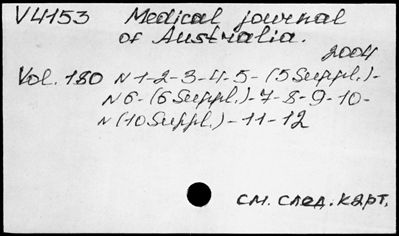 V4153 Medical journal
of Australia.
2004
Vol. 180 N 1-2-3-4-5-(5 Suppl.)-
N 6-(6 Suppl.)-7-8-9-10-
N (10 Suppl.)-11-12
см. след. карт.